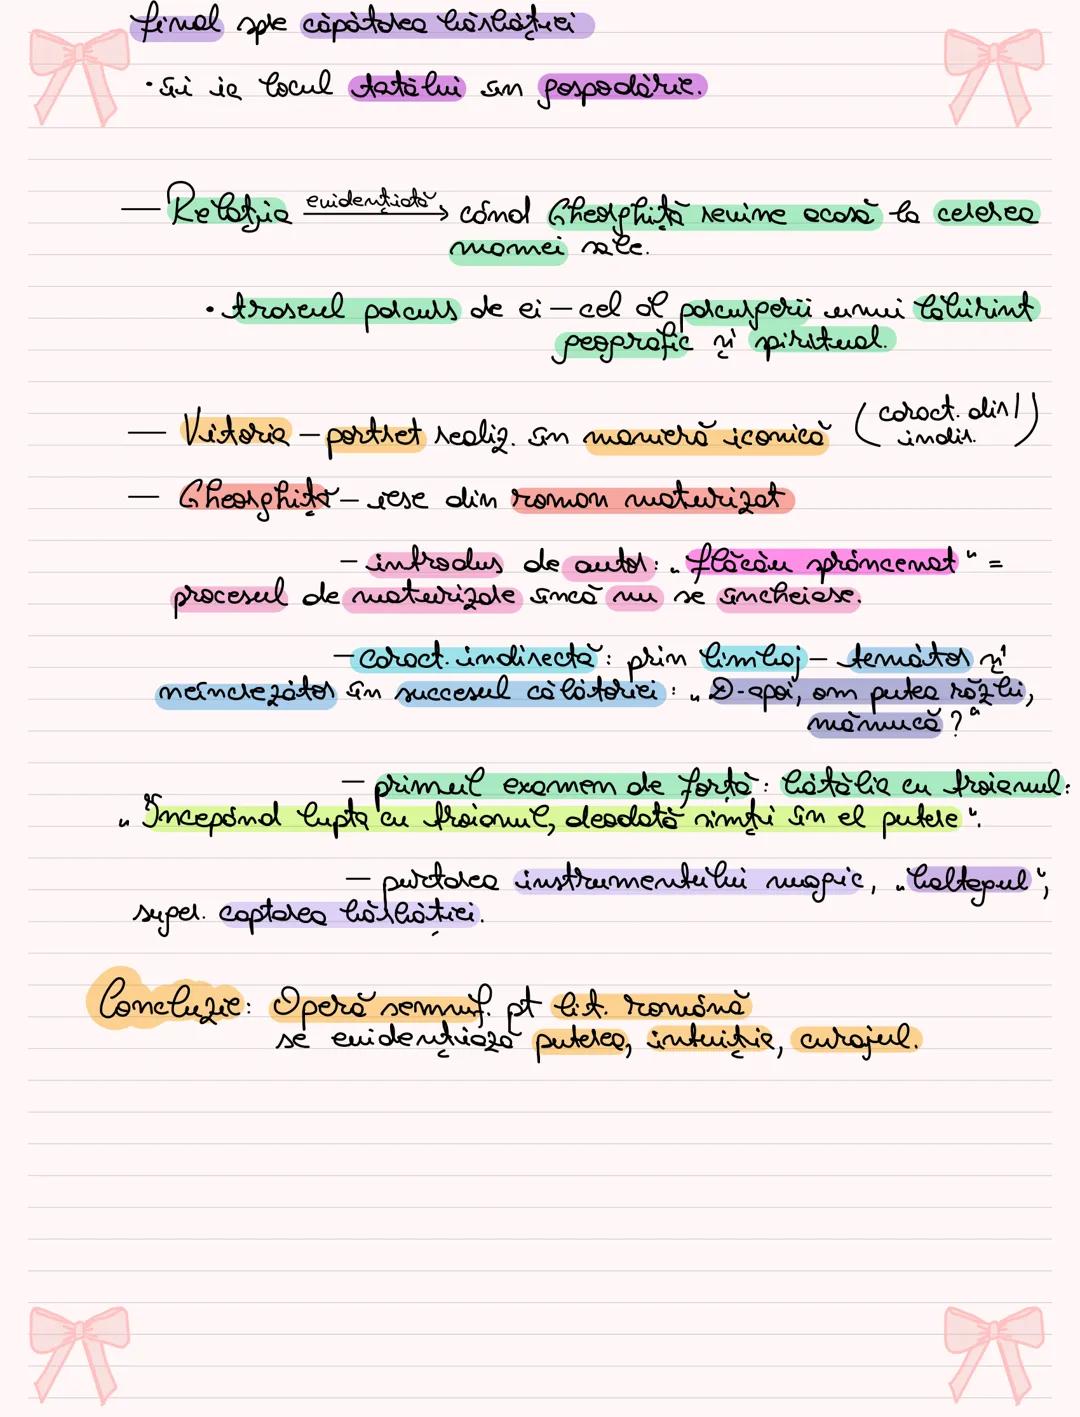 final spre căpătarea bărbăției
• Îi ia locul tatălui în gospodărie.
— Relația evidențiată → când Gheorghiță revine acasă la cererea
mamei sale.
• traseul parcurs de ei – cel al parcurgerii unui labirint
geografic și spiritual.
— Vitoria – portret realiz. în manieră iconică (caract. dir/
indir. )
— Gheorghiță – iese din roman maturizat
– introdus de autor: „flăcău sprâncenat" =
procesul de maturizare încă nu se încheiase.
– caract. indirectă: prin limbaj – temător și
neîncrezător în succesul călătoriei: „D-apoi, om putea răzbi,
mămucă?"
– primul examen de forță: bătălia cu troianul:
„Începând lupta cu troianul, deodată simți în el putere".
– purtarea instrumentului magic, „baltagul";
suger. captarea bărbăției.
Concluzie: Operă semnif. pt lit. română
se evidențiază puterea, intuiția, curajul.